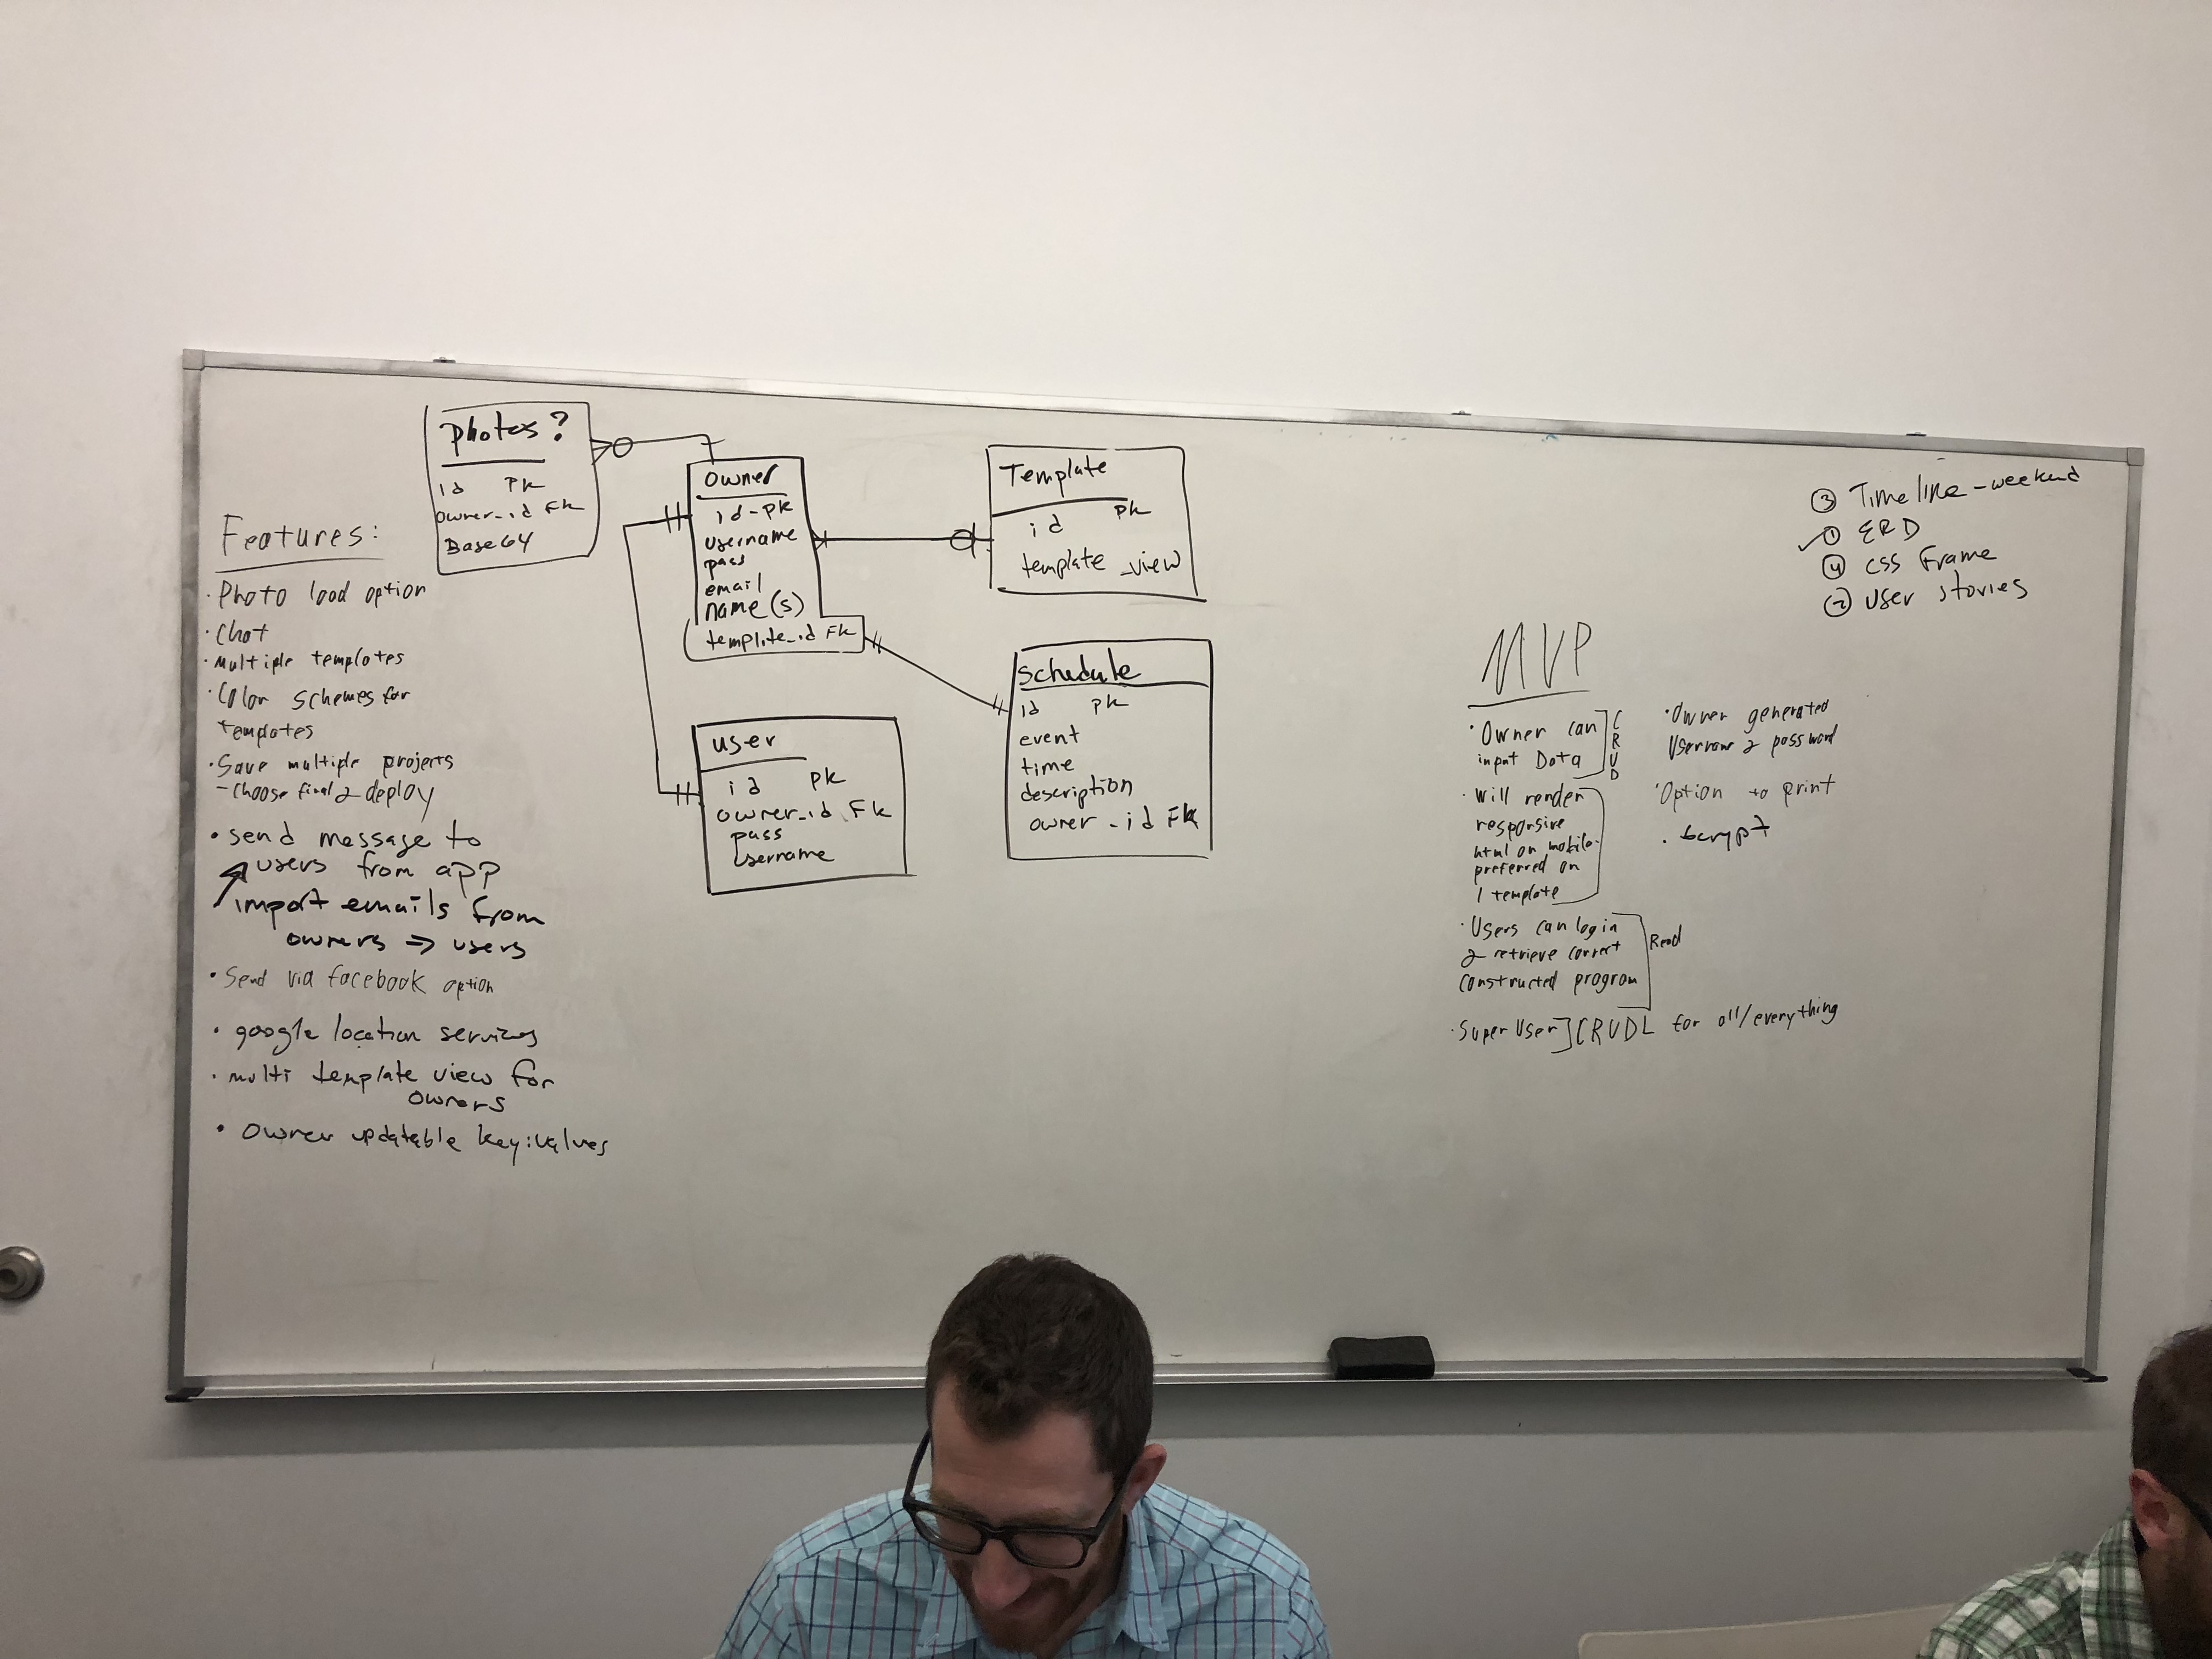 Features:
· Photo load option
· Chat
· Multiple templates
· Color schemes for
templates
· Save multiple projects
- Choose final & deploy
· send message to
users from app
import emails from
owners => users
· Send via facebook option
· google location services
· multi template view for
owners
· owner updatable key:values
photos?
id PK
owner_id FK
Base64
owner
id - pk
username
pass
email
name(s)
template_id FK
Template
id pk
template_view
user
id pk
owner_id FK
pass
username
schedule
id pk
event
time
description
owner_id FK
③ Timeline - weekend
① ERD
④ css Frame
② User stories
MVP
· Owner can
input Data
CRUD
· Will render
responsive
html on mobile-
preferred on
1 template
· Users can login
& retrieve correct
constructed program
Read
· Super User] CRUDL for all/everything
· Owner generated
Username & password
· Option to print
· bcrypt